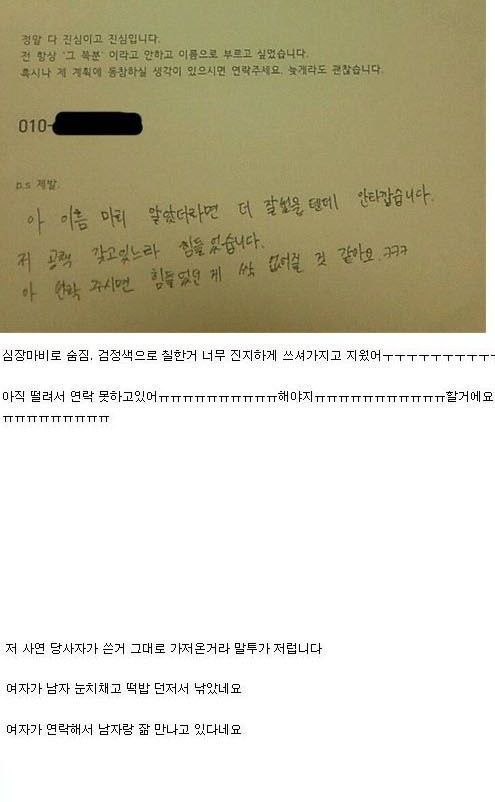 정말 다 진심이고 진심입니다.
전 항상 '그 쪽분' 이라고 안하고 이름으로 부르고 싶었습니다.
혹시나 제 계획에 동참하실 생각이 있으시면 연락주세요. 늦게라도 괜찮습니다.
010-
p.s 제발.
아 이름 미리 알았더라면 더 잘썼을 텐데 안타깝습니다.
저 공책 갖고있느라 힘들었습니다.
아 연락 주시면 힘들었던 게 싹 없어질 것 같아요.ㅋㅋㅋ
심장마비로 숨짐. 검정색으로 칠한거 너무 진지하게 쓰셔가지고 지웠어ㅜㅜㅜㅜㅜㅜㅜㅜㅜ
아직 떨려서 연락 못하고있어ㅠㅠㅠㅠㅠㅠㅠㅠㅠㅠ해야지ㅠㅠㅠㅠㅠㅠㅠㅠㅠㅠㅠ할거에요
ㅠㅠㅠㅠㅠㅠㅠㅠㅠ
저 사연 당사자가 쓴거 그대로 가져온거라 말투가 저럽니다
여자가 남자 눈치채고 떡밥 던저서 낚았네요
여자가 연락해서 남자랑 잚 만나고 있다네요